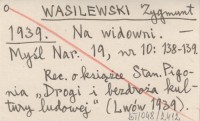 WASILEWSKI Zygmunt
1939. Na widowni. -
Myśl Nar. 19, nr 10: 138-139.
Rec. o książce Stan. Pigo-
nia „Drogi i bezdroża kul-
tury ludowej" (Lwów 1939).